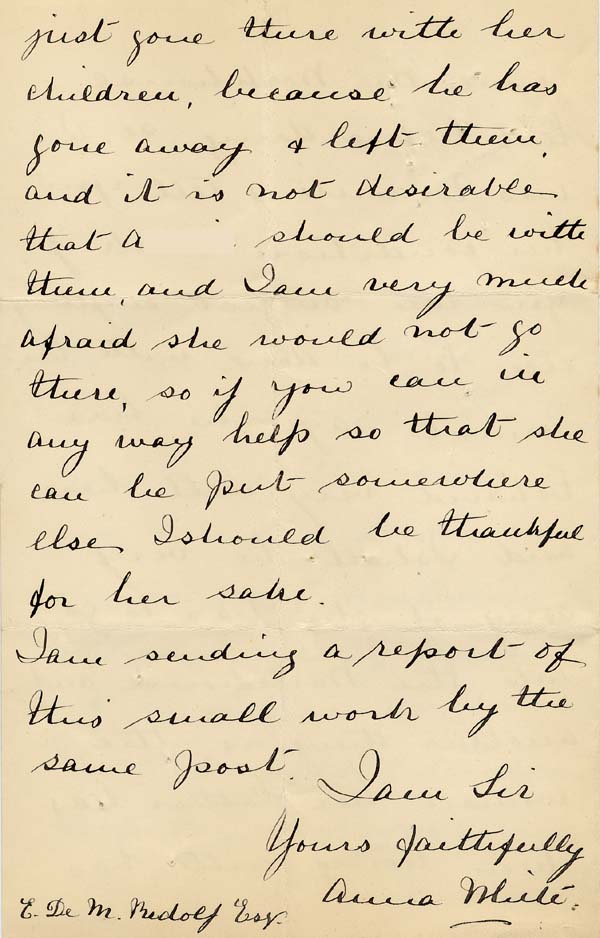 just gone there with her
children, because he has
gone away & left them,
and it is not desirable
that A should be with
them, and I am very much
afraid she would not go
there, so if you can in
any way help so that she
can be put somewhere
else I should be thankful
for her sake.
I am sending a report of
this small work by the
same post.
I am Sir
Yours faithfully
Anna White.
E. De M. Rudolf Esq.